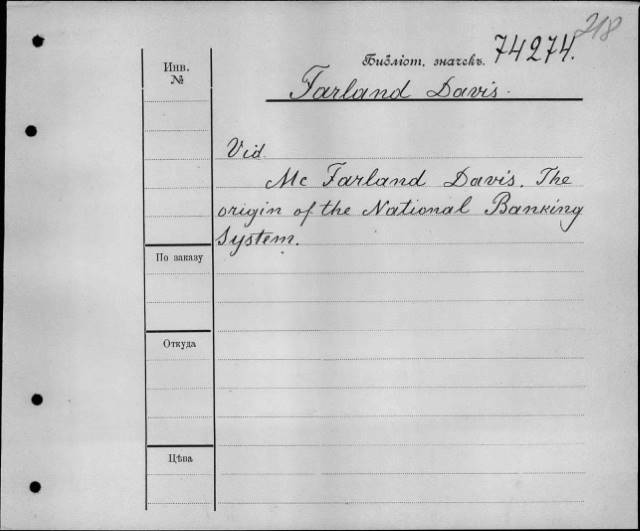 218
Библіот. значекъ. 74274.
Инв.
№
Farland Davis.
Vid.
Mc Farland Davis. The
origin of the National Banking
System.
По заказу
Откуда
Цѣна